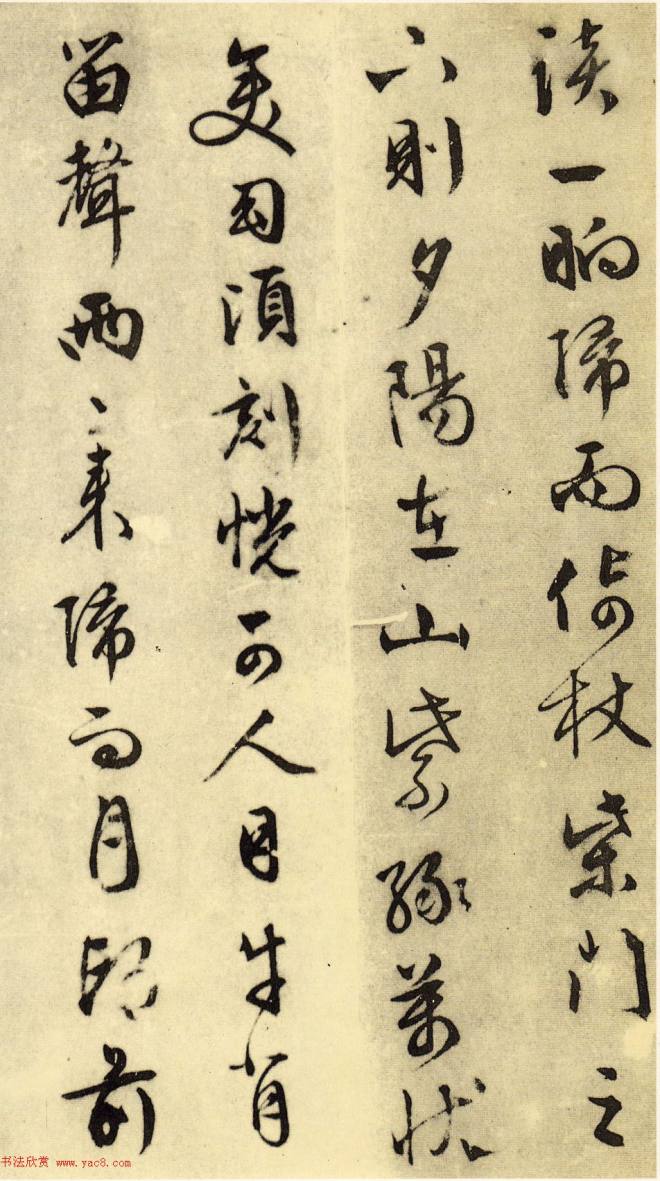 談一晌歸而倚杖柴門之
下則夕陽在山紫綠萬狀
變幻頃刻恍可人目牛背
笛聲兩〻來歸而月印前
书法欣赏 www.yac8.com